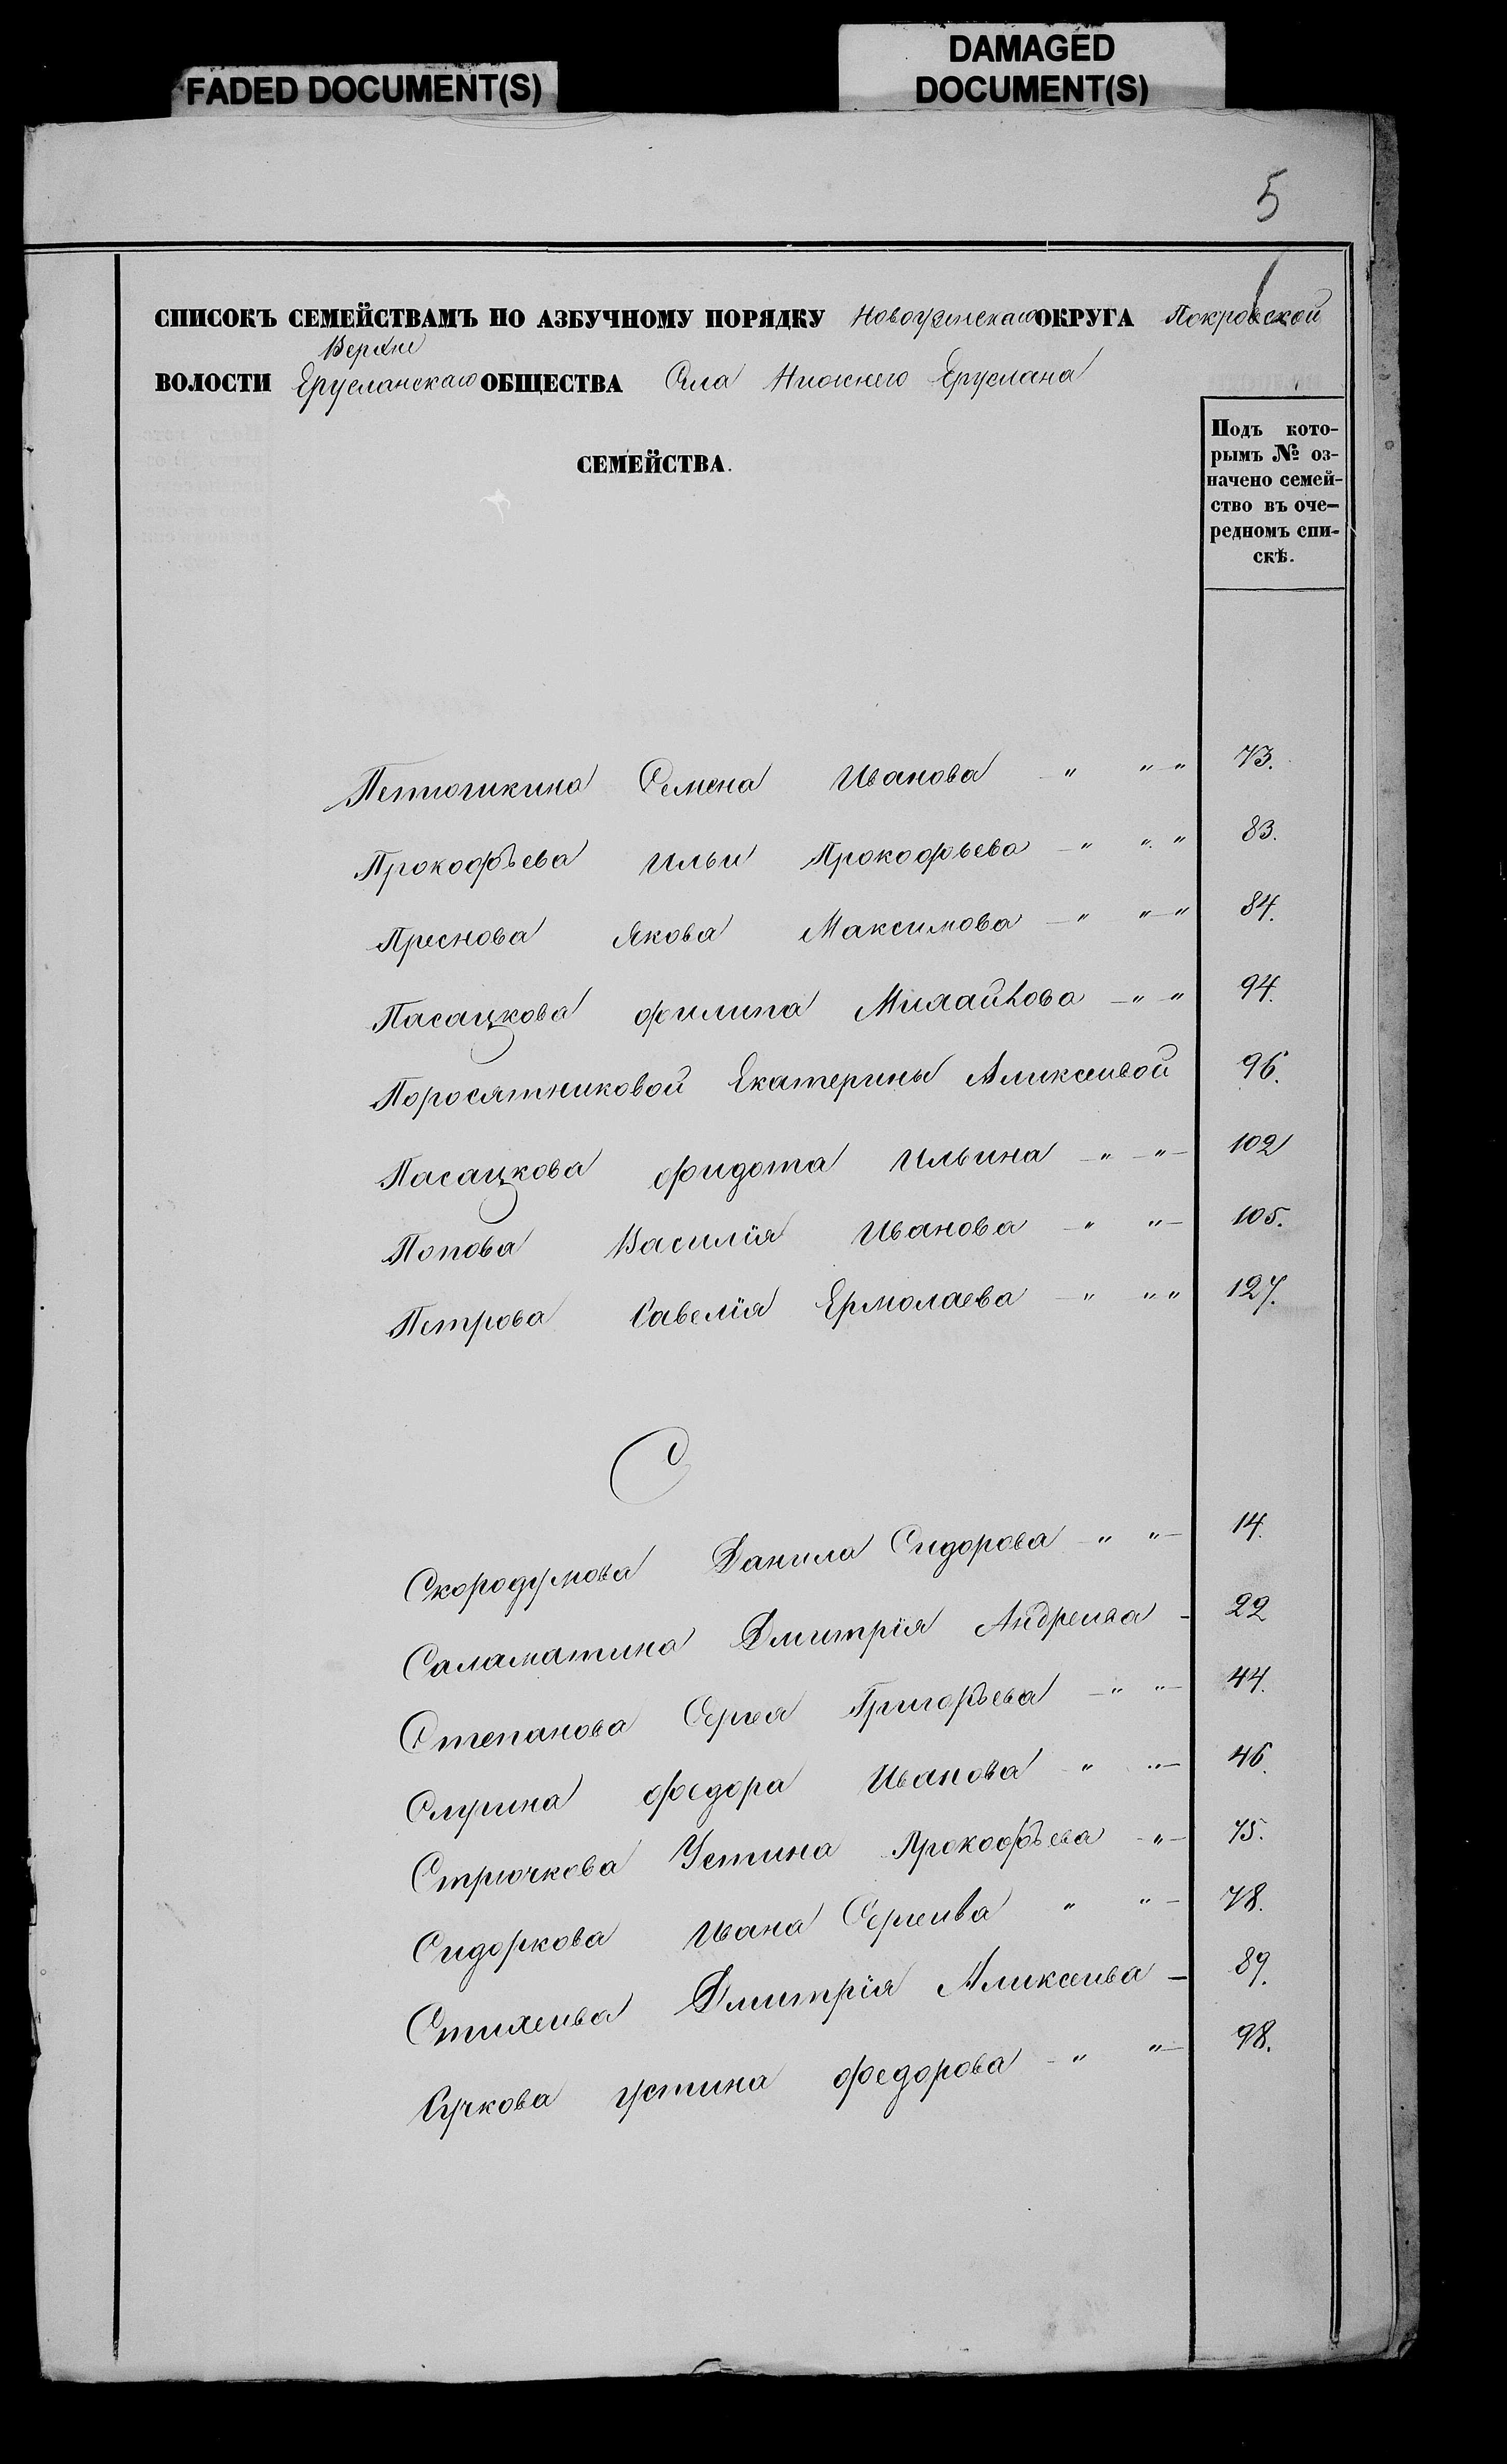 FADED DOCUMENT(S)
DAMAGED
DOCUMENT(S)
5
СПИСОКЪ СЕМЕЙСТВАМЪ ПО АЗБУЧНОМУ ПОРЯДКУ Новоузенскаго ОКРУГА Покровской
Верхне
ВОЛОСТИ Ерусланскаго ОБЩЕСТВА Села Нижнего Еруслана
СЕМЕЙСТВА.
Подъ кото-
рымъ № оз-
начено семей-
ство въ оче-
редномъ спи-
скѣ.
Петюшкина Семена Ивана " " " 73.
Прокофьева Ильи Прокофьева " " " 83.
Преснова Якова Максимова " " " 84.
Пасацкова Филипа Михайлова " " 94.
Поросятниковой Екатерины Аликсеивой 96.
Пасацкова Фидота Ильина " " 102
Попова Василія Иванова " " 105.
Петрова Савелія Ермолаева " " " 127.
С
Скородумова Данила Сидорова " " 14.
Саламатина Дмитрія Андреива 22
Степанова Сергея Григорьева " " 44.
Слугина Федора Иванова " " 46.
Стрючкова Устина Прокофьева " 75.
Сидоркова Ивана Сергеива " " 78.
Стихеива Дмитрія Аликсеива 89.
Сучкова Устина Федорова " " 98.